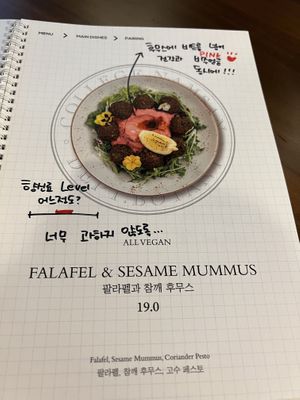 MENU > MAIN DISHES > PAIRING
후무스에 비트를 넣어
PINK
건강과 비쥬얼을
동시에!!!
COLLECTION
향신료 Level
어느정도?
너무 과하지 않도록...
ALL VEGAN
FALAFEL & SESAME MUMMUS
팔라펠과 참깨 후무스
19.0
Falafel, Sesame Mummus, Coriander Pesto
팔라펠, 참깨 후무스, 고수 페스토